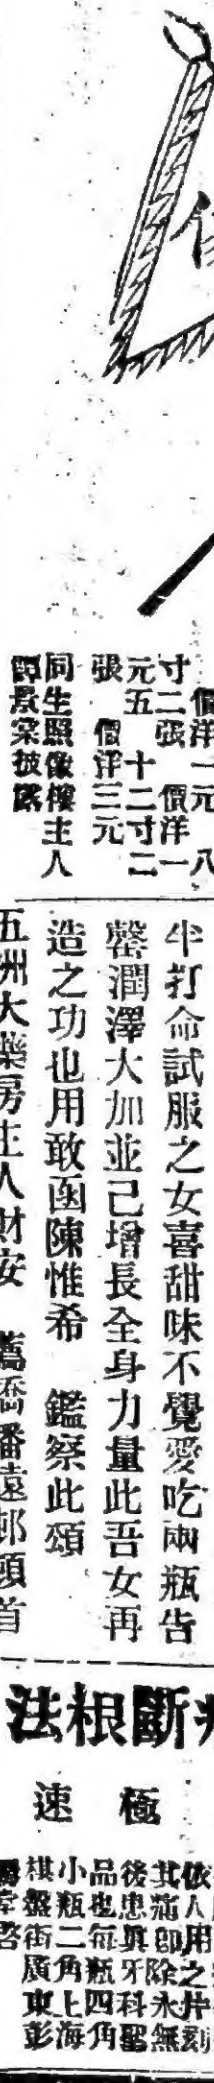 價洋一元 八
寸二張 價洋一
元五 十二寸二
張 價洋三元
同生照像樓主人
譚景棠披露
半打命試服之女喜甜味不覺愛吃兩瓶告
罄潤澤大加並已增長全身力量此吾女再
造之功也用敢函陳惟希 鑑察此頌
五洲大藥房主人財安 潘遠邨頓首
斷根法
極速
依人用之片刻
其痛即除永無
後患眞牙科聖
品也每瓶四角
小瓶二角上海
棋盤街廣東彭